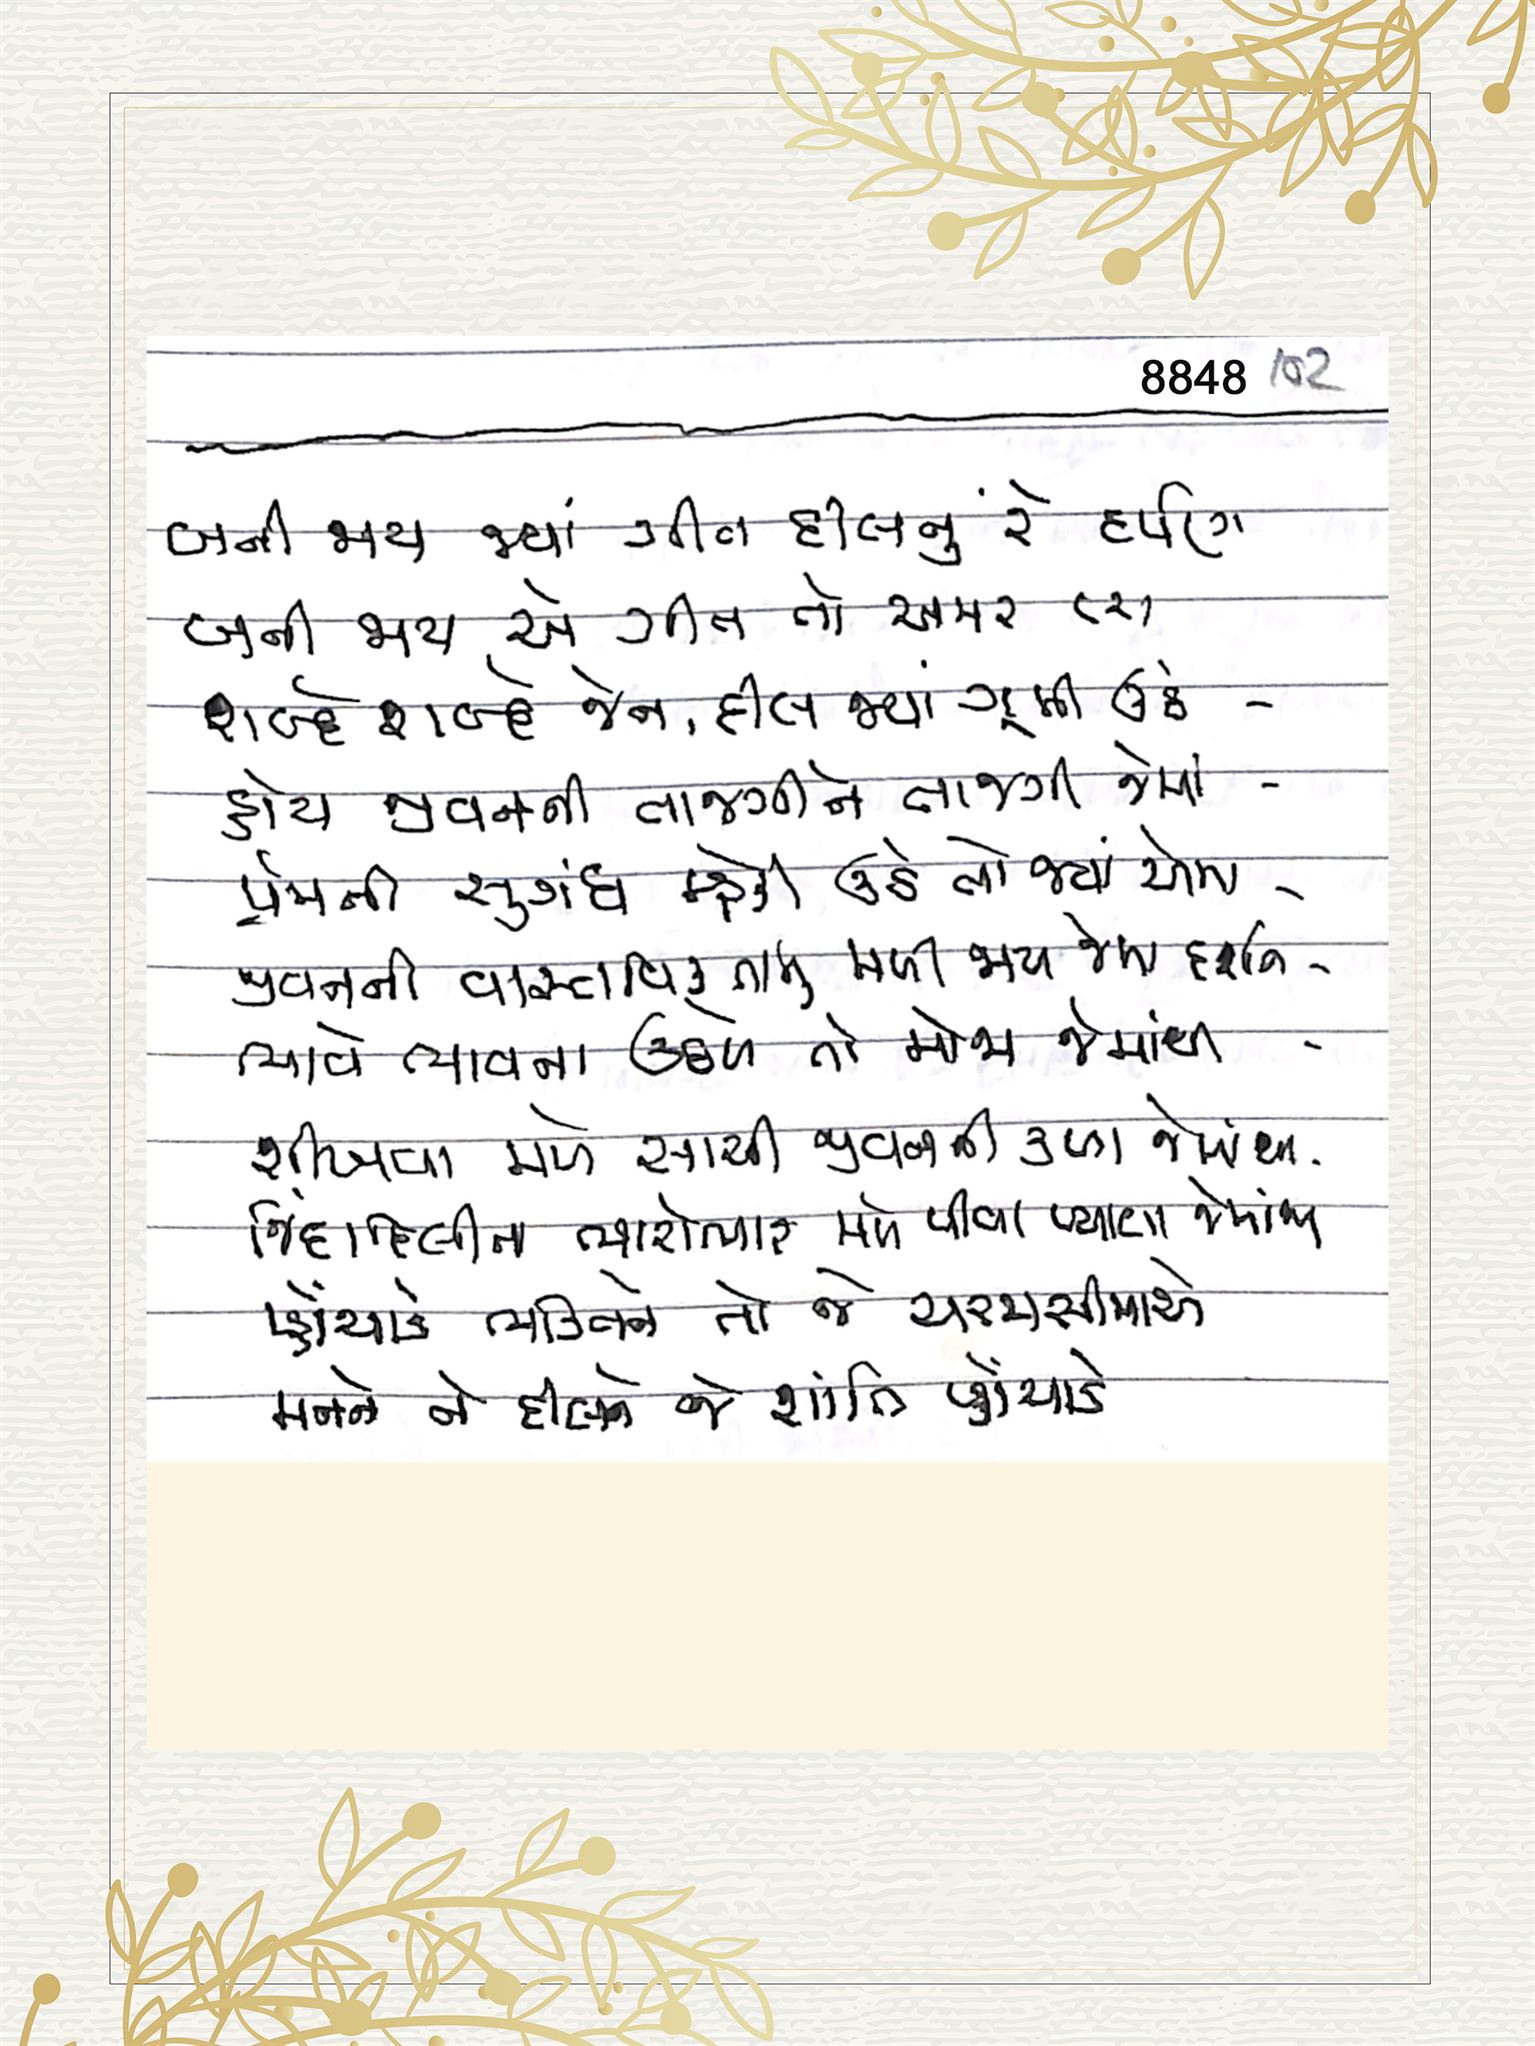 8848 102
બની જાય જ્યાં ગીત દીલનું રે દર્પણ
બની જાય એ ગીત તો અમર
શબ્દે શબ્દે જેના, દીલ જ્યાં ઝૂમી ઉઠે -
હોય જીવનની તાજગી ને તાજગી જેમાં -
પ્રેમની સુગંધ મ્હેકી ઉઠે તો જ્યાં એમાં -
જીવનની વાસ્તવિકતાનું મળી જાય જેમાં દર્શન -
ભાવે ભાવના ઉછળે તો મોજા જેમાંથી -
શીખવા મળે સાચી જીવનની કળા જેમાંથી.
જિંદાદિલીના ભારોભાર મળે પીવા પ્યાલા જેમાંથી
પ્હોંચાડે ભક્તિને તો જે ચરમસીમાએ
મનને ને દીલને જે શાંતિ પ્હોંચાડે